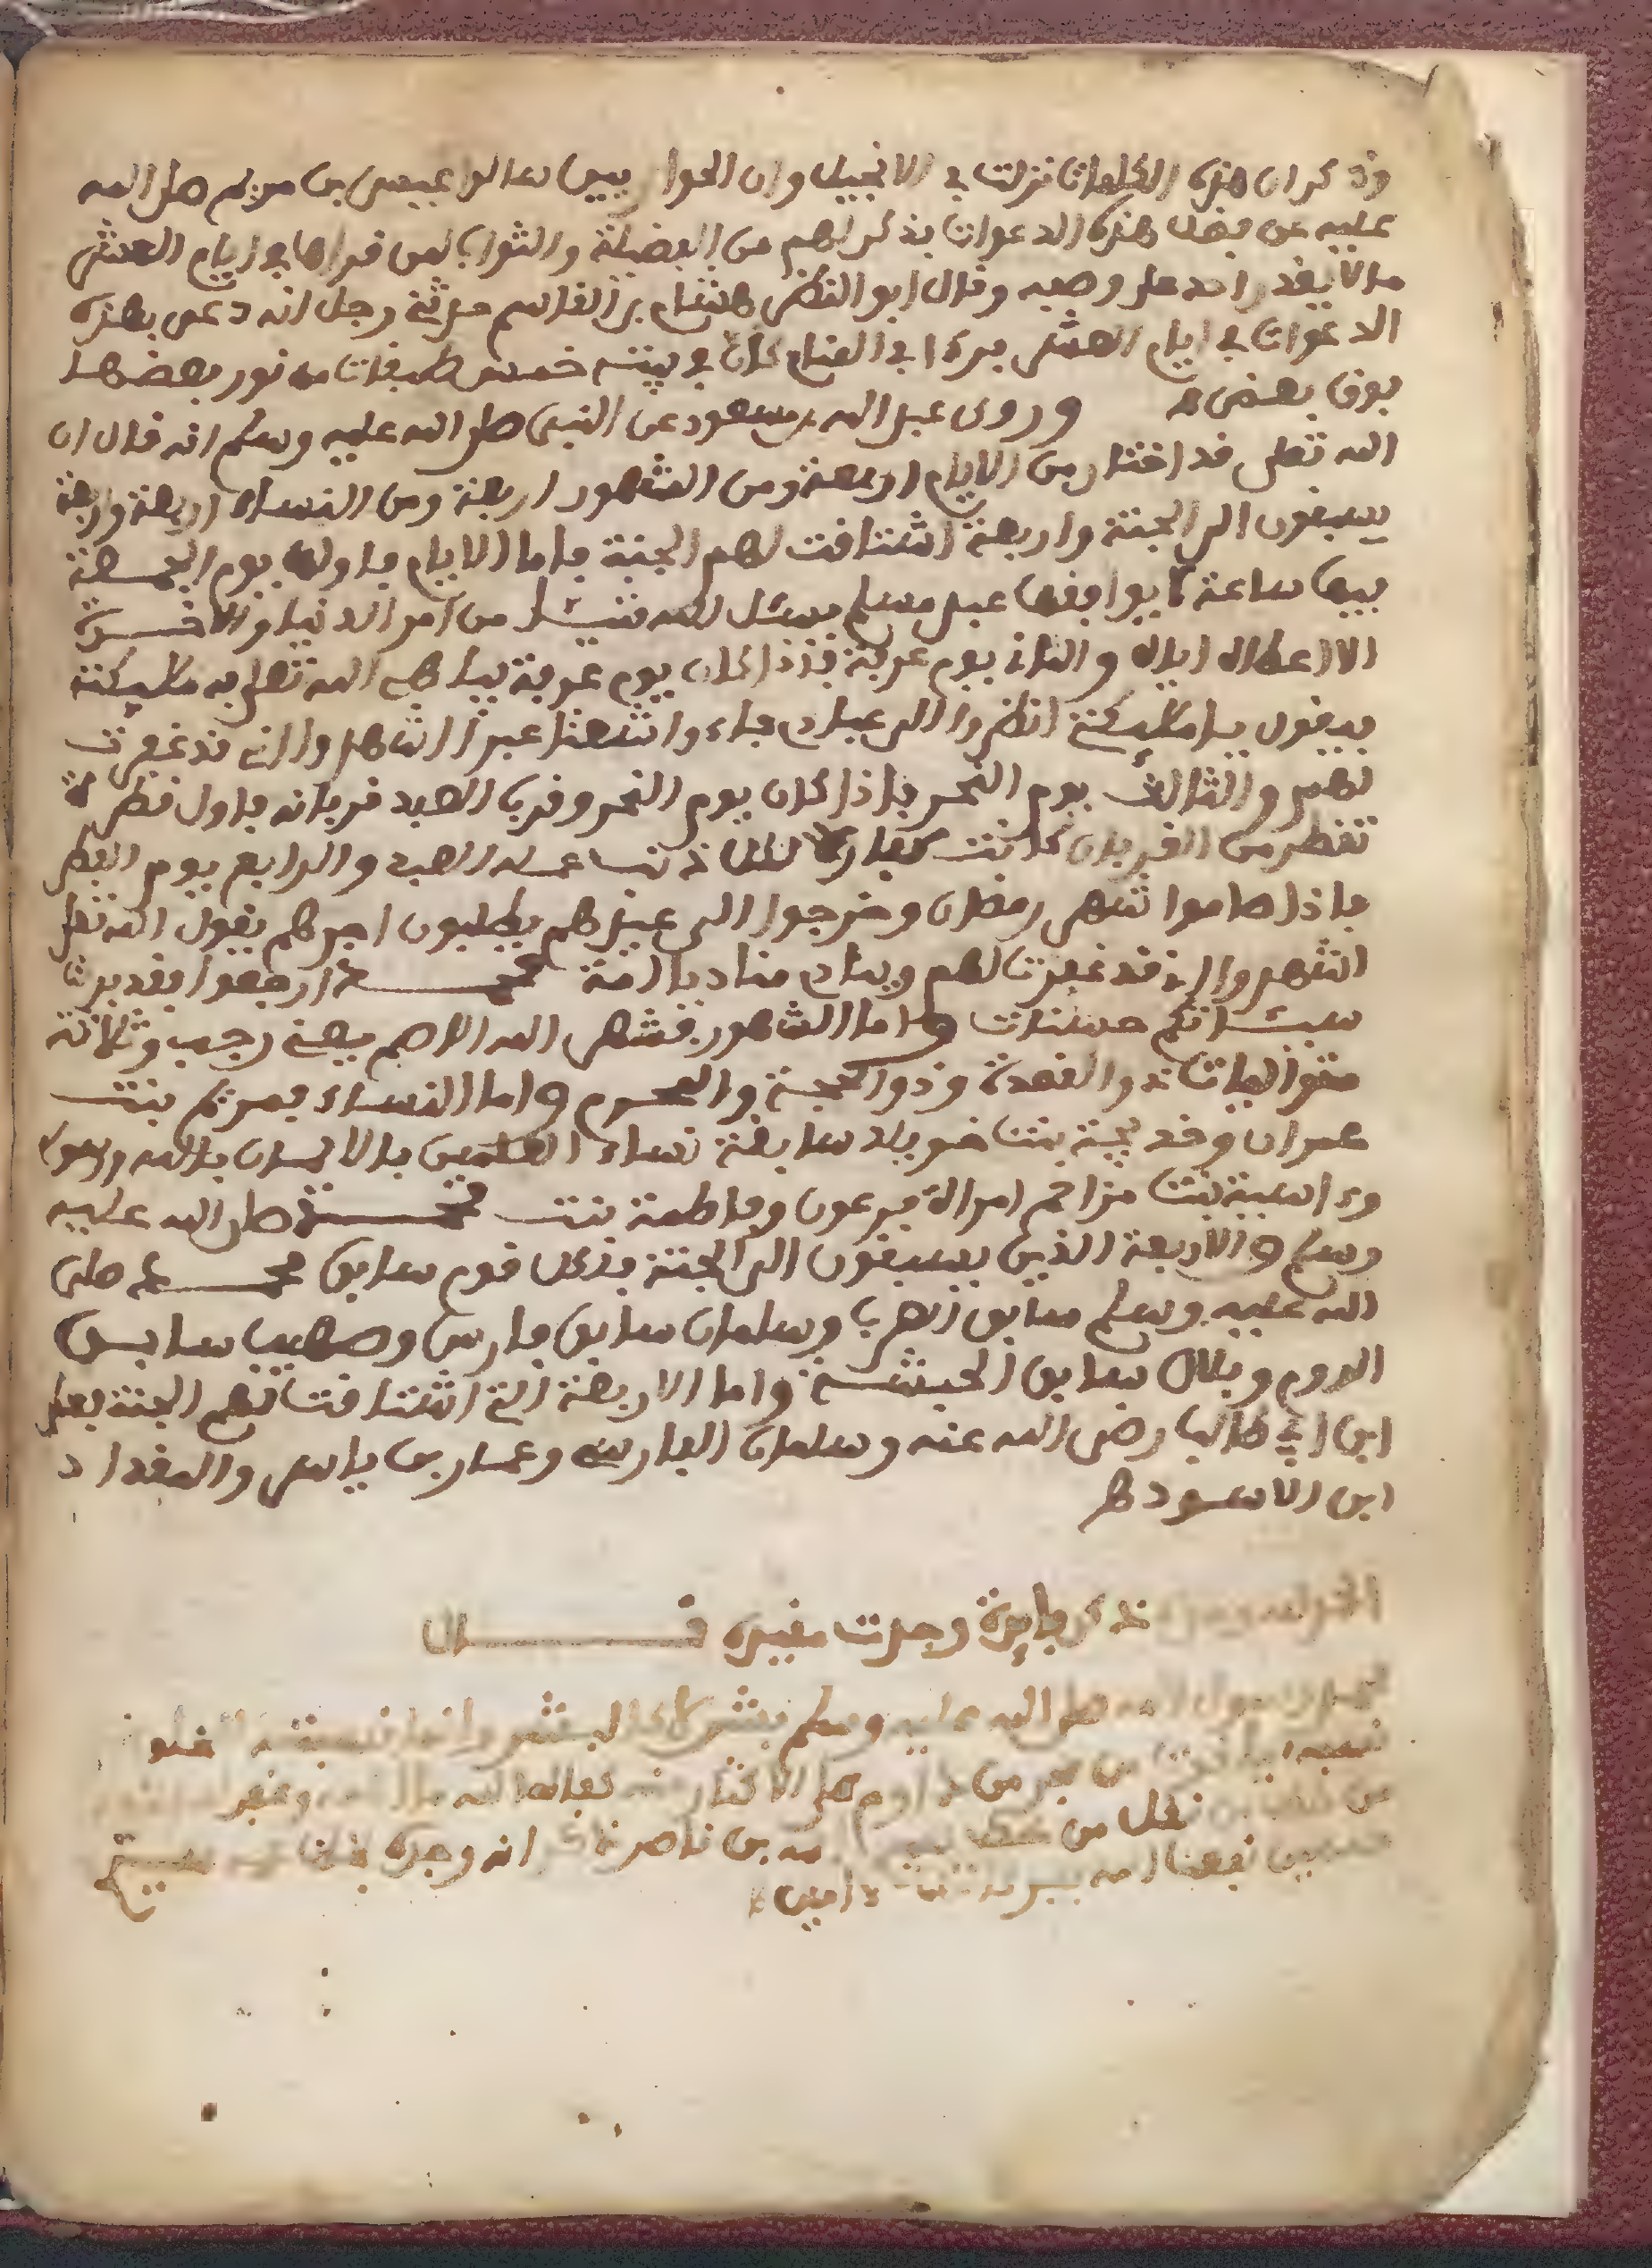 وذكر ان هذه الكلمات نزلت في الانجيل وان الحواريين سالوا عيسى بن مريم صلى الله
عليه عن فضل هذه الدعوات فذكر لهم من الفضيلة والثواب لمن قراها في ايام العشر
ما لا يقدر احد على وصفه وقال ابو النضر هشام بن القاسم حدثني رجل انه دعى بهذه
الدعوات في ايام العشر فرءا في المنام كان في بيته خمس طبقات من نور بعضها
فوق بعض وروى عبد الله بن مسعود عن النبي صلى الله عليه وسلم انه قال ان
الله تعلى قد اختار من الايام اربعة ومن الشهور اربعة ومن النساء اربعة واربعة
يسبقون الى الجنة واربعة اشتاقت لهم الجنة فاما الايام فاولها يوم الجمعة
فيها ساعة لا يوافقها عبد مسلم يسئل الله شيئا من امر الدنيا والاخرة
الا اعطاه اياه والثاني يوم عرفة فإذا كان يوم عرفة يباهي الله تعلى به ملئكته
فيقول يا ملئكتي انظروا الى عبادي جاءوا شعثا غبرا اشهدوا اني قد غفرت
لهم والثالث يوم النحر فاذا كان يوم النحر وقرب العبد قربانه فاول قطرة
تقطر من القربان كانت كفارة لكل ذنب عمله العبد والرابع يوم الفطر
فاذا صاموا شهر رمضان وخرجوا الى عيدهم يطلبون اجرهم يقول الله تعلى
اشهدوا اني قد غفرت لهم وينادي مناد يا امة محمد ارجعوا فقد بدلت
سيئاتكم حسنات واما الشهور فشهر الله الاصم يعني رجب وثلاثة
متواليات ذو القعدة وذو الحجة والمحرم واما النساء فمريم بنت
عمران وخديجة بنت خويلد سابقة نساء العلمين بالايمان بالله ورسوله
وءاسية بنت مزاحم امراة فرعون وفاطمة بنت محمد صلى الله عليه
وسلم والاربعة الذين يسبقون الى الجنة فلكل قوم سابق محمد صلى
الله عليه وسلم سابق العرب وسلمان سابق فارس وصهيب سابق
الروم وبلال سابق الحبشة واما الاربعة التي اشتاقت لهم الجنة فعلي
ابن ابي طالب رضي الله عنه وسلمان الفارسي وعمار بن ياسر والمقداد
ابن الاسود
ذكر فايدة وجدت مقيدة قال
رسول الله صلى الله عليه وسلم
من
نقل من بن ناصر انه وجده
نفعنا الله امين